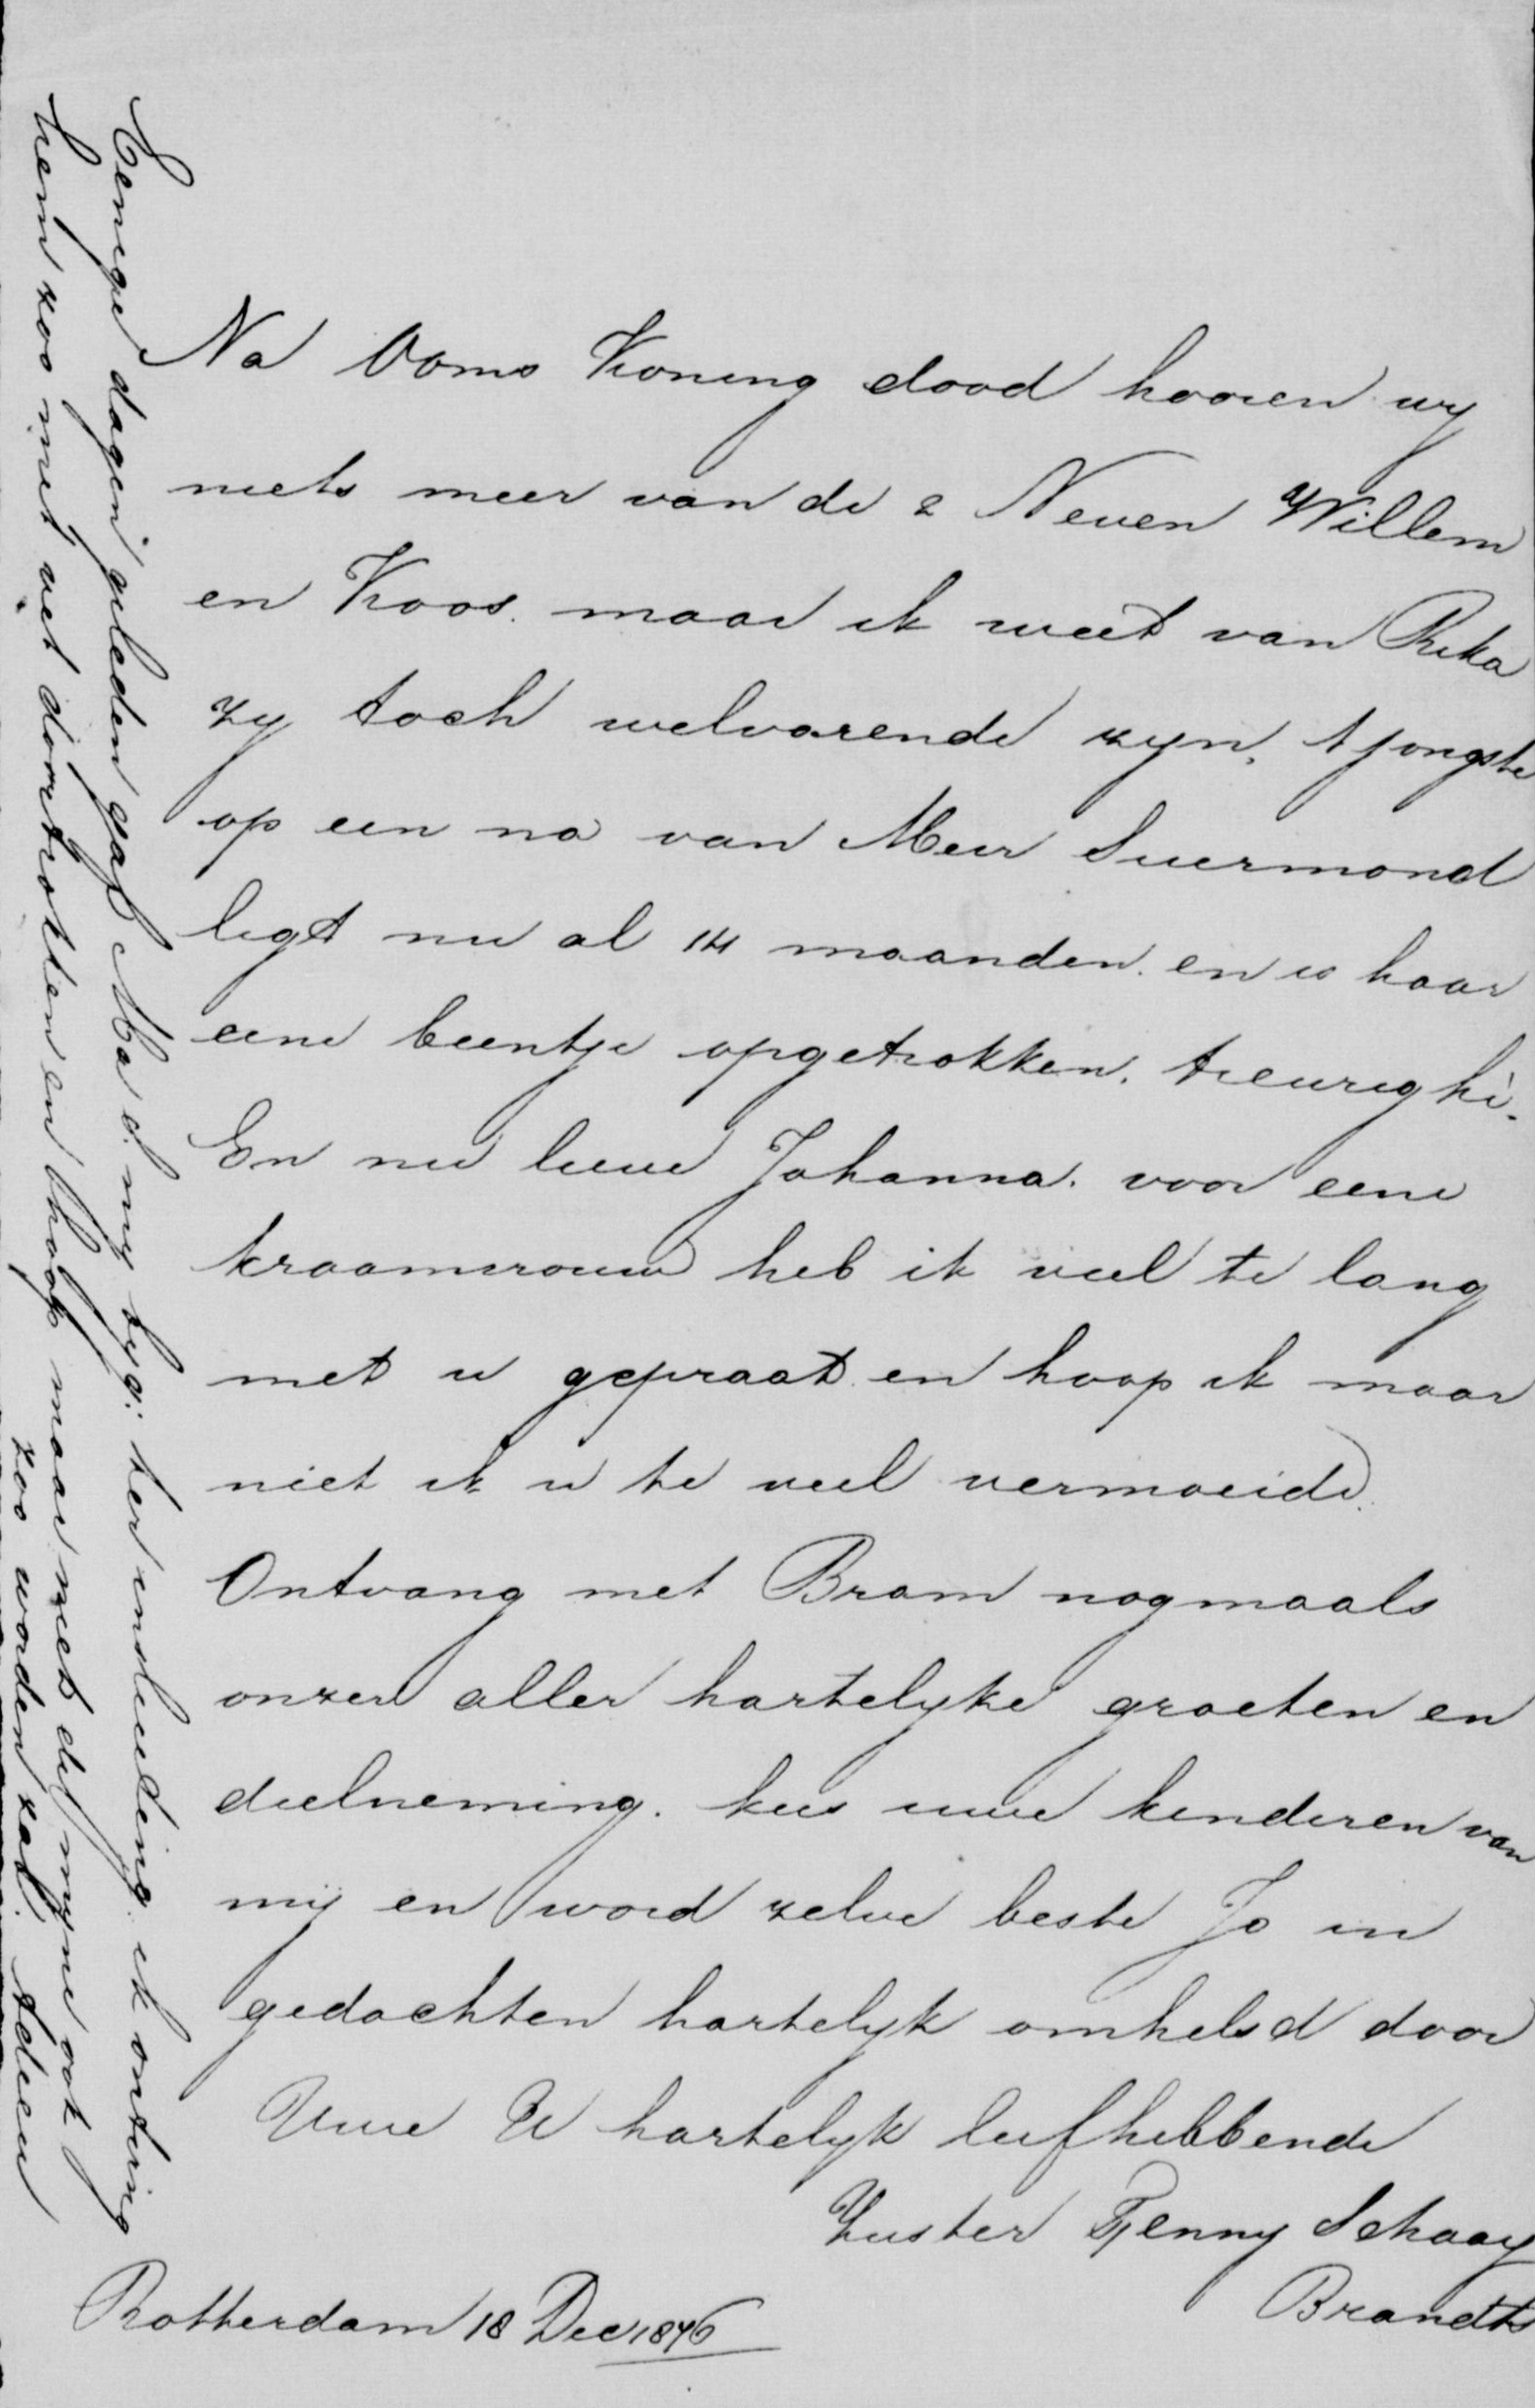 Na Ooms Koning dood hooren wy
niets meer van de 2 Neven Willem
en Koos. maar ik weet van Rika
zy toch welvarende zyn. t jongste
op een na van Meur Suermond
ligt nu al 14 maanden. en is haar
eene beentje opgetrokken. treurig hè.
En nu lieve Johanna. voor eene
kraamvrouw heb ik veel te lang
met u gepraat en hoop ik maar
niet ik u te veel vermoeide.
Ontvang met Bram nogmaals
onzer aller hartelyke groeten en
deelneming. kus uwe kinderen van
mij en word zelve beste Jo in
gedachten hartelyk omhelsd door
Uwe U hartelyk liefhebbende
Zuster Fenny Schaay
Brandts
Rotterdam 18 Dec 1876
Eenige dagen geleden gaf Ma S. my byg: ter insluiting. ik onting
hem zoo niet vet doortrokken en hoop maar niet dit myne ook
zoo worden zal. Adieu